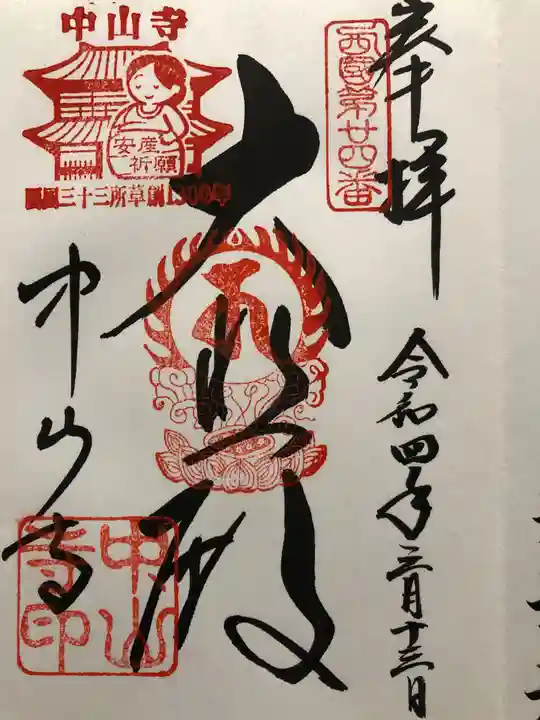 奉拝
西國第廿四番
令和四年三月十三日
大悲殿
中山寺
安産
祈願
西国三十三所草創1300年
中山寺
中山寺印